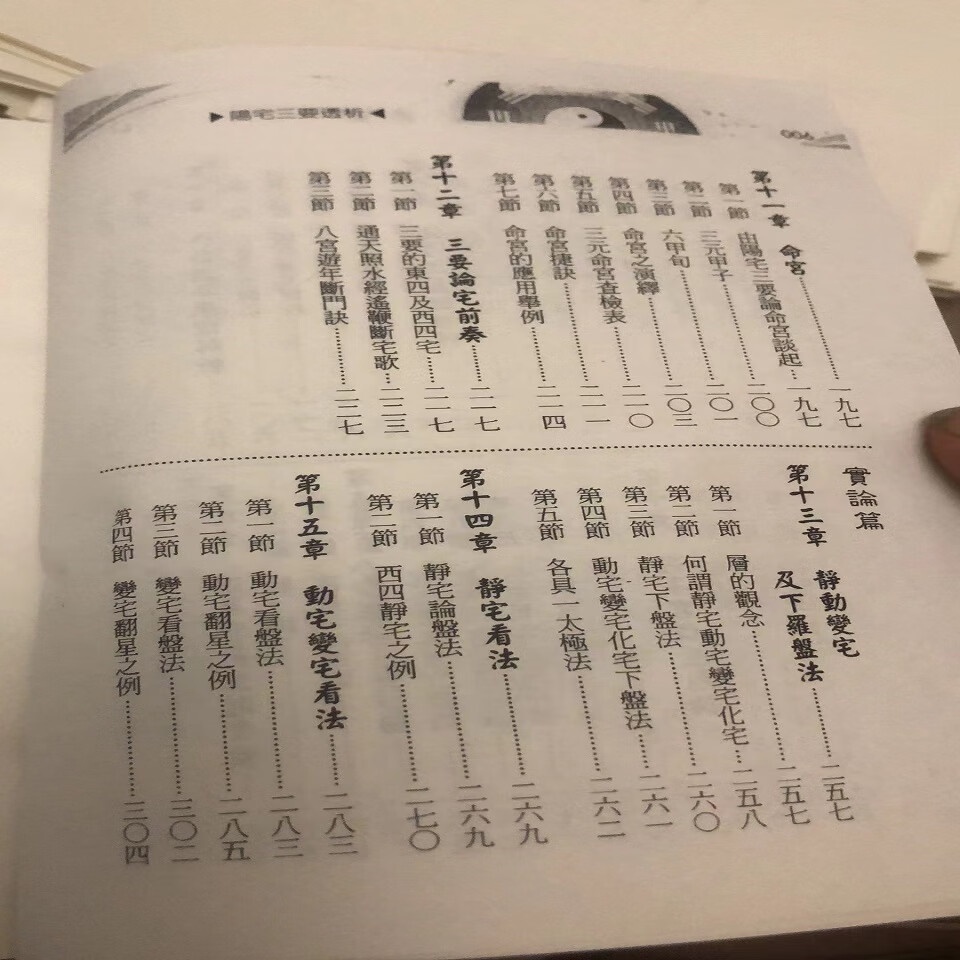 ▶陽宅三要透析◀
006
第十一章 命宮……一九七
第一節 由陽宅三要論命宮談起…一九七
第二節 三元甲子……二〇〇
第三節 六甲旬……二〇一
第四節 命宮之演繹……二〇三
第五節 三元命宮查檢表……二一〇
第六節 命宮捷訣……二一一
第七節 命宮的應用舉例……二一四
第十二章 三要論宅前奏……二一七
第一節 三要的東四及西四宅……二一七
第二節 通天照水經遙鞭斷宅歌…二二三
第三節 八宮遊年斷門訣……二二七
實論篇
第十三章 靜動變宅
及下羅盤法……二五七
第一節 層的觀念……二五七
第二節 何謂靜宅動宅變宅化宅…二五八
第三節 靜宅下盤法……二六〇
第四節 動宅變宅化宅下盤法……二六一
第五節 各具一太極法……二六二
第十四章 靜宅看法……二六九
第一節 靜宅論盤法……二六九
第二節 西四靜宅之例……二七〇
第十五章 動宅變宅看法……二八三
第一節 動宅看盤法……二八三
第二節 動宅翻星之例……二八五
第三節 變宅看盤法……三〇二
第四節 變宅翻星之例……三〇四